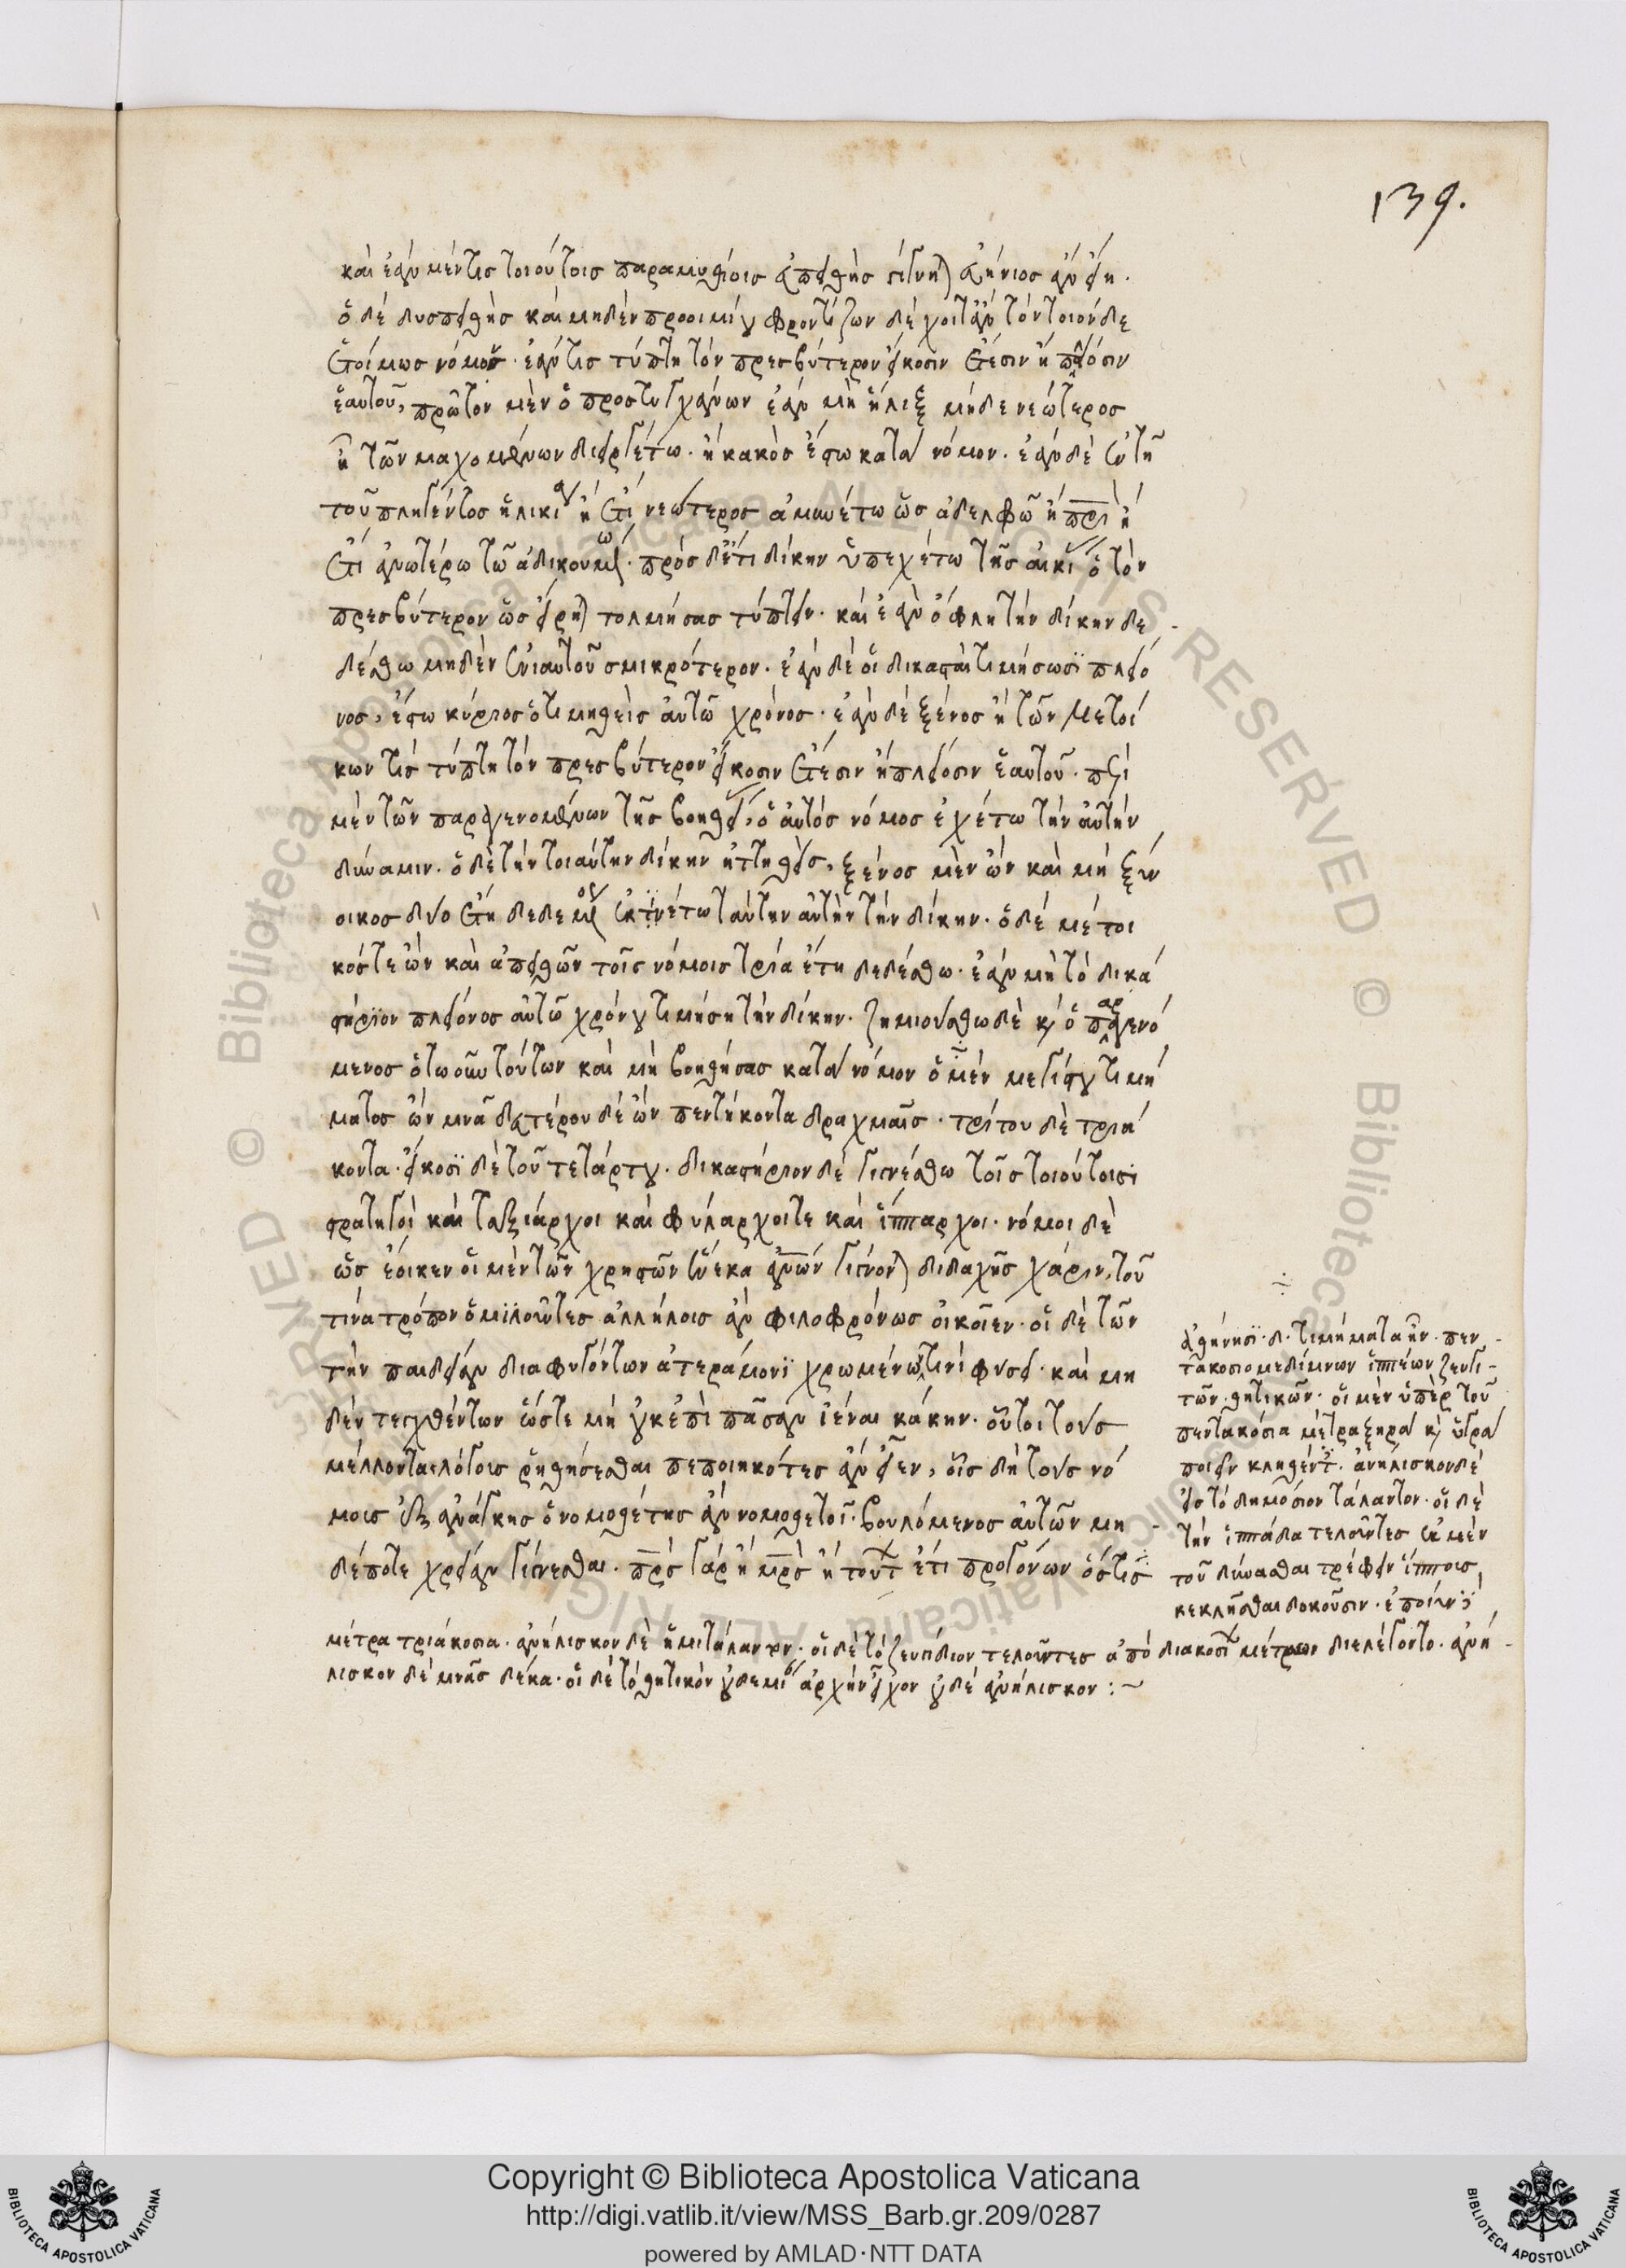 139.
καὶ ἐὰν μέν τις τοιούτοις παραμυθίοις εὐπειθὴς γίγνηται εὐήνιος ἂν εἴη.
ὁ δὲ δυσπειθὴς καὶ μηδὲν προοιμίου φροντίζων δέχοιτ' ἂν τὸν τοιόνδε
ἑτοίμως νόμον. ἐάν τις τύπτη τὸν πρεσβύτερον εἴκοσιν ἔτεσιν ἢ πλείοσιν
ἑαυτοῦ, πρῶτον μὲν ὁ προστυγχάνων ἐὰν μὴ ἧλιξ μηδὲ νεώτερος
ἦ τῶν μαχομένων διειργέτω. ἢ κακὸς ἔστω κατὰ νόμον. ἐὰν δὲ ἐν τῆ
τοῦ πληγέντος ἡλικία ἢ ἔτι νεώτερος ἀμυνέτω ὡς ἀδελφῶ ἢ πατρὶ ἢ
ἔτι ἀνωτέρω τῶ ἀδικουμένω. πρὸς δ' ἔτι δίκην ὑπεχέτω τῆς αἰκίας ὁ τὸν
πρεσβύτερον ὡς εἴρηται τολμήσας τύπτειν. καὶ ἐὰν ὄφλη τὴν δίκην δε-
δέσθω μηδὲν ἐνιαυτοῦ σμικρότερον. ἐὰν δὲ οἱ δικασταὶ τιμήσωσϊ πλείο
νος, ἔστω κύριος ὁ τιμηθεὶς αὐτῶ χρόνος. ἐὰν δὲ ξένος ἢ τῶν μετοί
κων τὶς τύπτη τὸν πρεσβύτερον εἴκοσιν ἔτεσιν ἢ πλείοσιν ἑαυτοῦ. περὶ
μὲν τῶν παραγενομένων τῆς βοηθείας, ὁ αὐτὸς νόμος ἐχέτω τὴν αὐτὴν
δύναμιν. ὁ δὲ τὴν τοιαύτην δίκην ἡττηθεὶς, ξένος μὲν ὢν καὶ μὴ ξύν
οικος δύο ἔτη δεδεμένος ἐκτϊνέτω ταύτην αὐτὴν τὴν δίκην. ὁ δὲ μέτοι
κός τε ὢν καὶ ἀπειθῶν τοῖς νόμοις τρία ἔτη δεδέσθω. ἐὰν μὴ τὸ δικα
στήριον πλείονος αὐτῶ χρόνου τιμήση τὴν δίκην. ζημιούσθω δὲ κὶ ὁ παραγενό
μενος ὁτωοῦν τούτων καὶ μὴ βοηθήσας κατὰ νόμον ὁ μὲν μεγίστου τιμή
ματος ὢν μνᾶ δευτέρου δὲ ὢν πεντήκοντα δραχμαῖς. τρίτου δὲ τριά
κοντα. εἴκοσϊ δὲ τοῦ τετάρτου. δικαστήριον δὲ γιγνέσθω τοῖς τοιούτοισϊ
στρατηγοὶ καὶ ταξίαρχοι καὶ φύλαρχοί τε καὶ ἵππαρχοι. νόμοι δὲ
ὡς ἔοικεν οἱ μὲν τῶν χρηστῶν ἕνεκα ἀνῶν γίγνονται διδαχῆς χάριν, τοῦ
τίνα τρόπον ὁμϊλοῦντες ἀλλήλοις ἂν φιλοφρόνως οἰκοῖεν. οἱ δὲ τῶν
τὴν παιδείαν διαφυγόντων ἀτεράμονϊ χρωμένων τινὶ φύσει. καὶ μη
δὲν τεγχθέντων ὥστε μὴ οὐκ ἐπὶ πᾶσαν ἰέναι κάκην. οὗτοι τοὺς
μέλλοντας λόγοις ῥηθήσεσθαι πεποιηκότες ἂν εἶεν, οἷς δὴ τοὺς νό
μοις ἐξ ἀνάγκης ὁ νομοθέτης ἂν νομοθετοῖ. βουλόμενος αὐτῶν μη-
δέποτε χρείαν γίγνεσθαι. πρς γὰρ ἢ μρς ἢ τούτων ἔτι προγόνων ὅστις
ἀθήνησϊ. δ. τιμήματα ἦν. πεν-
τακοσιομεδίμνων ἱππέων ζευγι-
τῶν. θητικῶν. οἱ μὲν ὑπὲρ τοῦ
πεντακόσια μέτρα ξηρὰ κὶ ὑγρὰ
ποιεῖν κληθέντες. ἀνήλισκον δὲ
εἰς τὸ δημόσιον τάλαντον. οἱ δὲ
τὴν ἱππάδα τελοῦντες ἐκ μὲν
τοῦ δύνασθαι τρέφειν ἵππους,
κεκλῆσθαι δοκοῦσιν. ἐποίουν δὲ
μέτρα τριάκοσια. ἀνήλισκον δὲ ἡμιτάλαντον. οἱ δὲ τὸ ζευγίδιον τελοῦντες ἀπὸ διακοσίων μέτρων διελέγοντο. ἀνή-
λισκον δὲ μνᾶς δέκα. οἱ δὲ τὸ θητικὸν οὐδεμίαν ἀρχὴν εἶχον οὐδὲ ἀνήλισκον :~
Copyright © Biblioteca Apostolica Vaticana
http://digi.vatlib.it/view/MSS_Barb.gr.209/0287
powered by AMLAD·NTT DATA
BIBLIOTECA APOSTOLICA VATICANA
BIBLIOTECA APOSTOLICA VATICANA